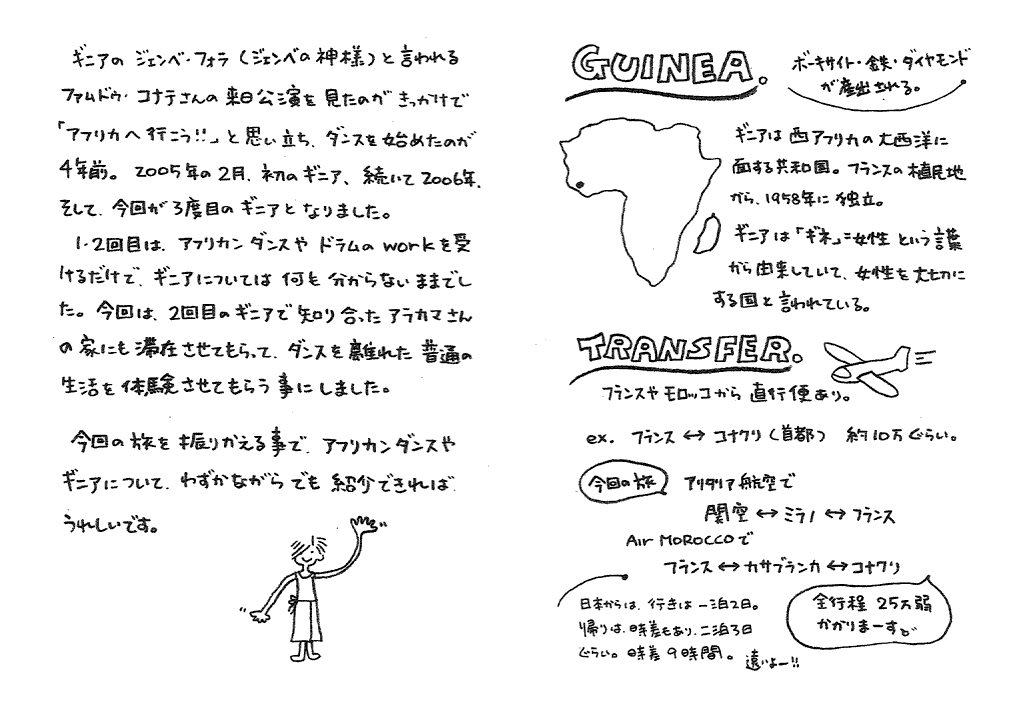 ギニアの ジェンベ・フォラ (ジェンベの神様)と言われる
ファムドゥ・コナテさんの来日公演を見たのがきっかけで
「アフリカへ行こう!!」と思い立ち、ダンスを始めたのが
4年前。2005年の2月、初のギニア、続いて2006年、
そして、今回が3度目のギニアとなりました。
1・2回目は、アフリカンダンスや ドラムのworkを受
けるだけで、ギニアについては何も分からないままでし
た。今回は、2回目のギニアで知り合ったアラカマさん
の家にも滞在させてもらって、ダンスを離れた普通の
生活を体験させてもらう事にしました。
今回の旅を振りかえる事で、アフリカンダンスや
ギニアについて、わずかながらでも紹介できれば
うれしいです。
GUINEA.
ボーキサイト・鉄・ダイヤモンド
が産出される。
ギニアは西アフリカの大西洋に
面する共和国。フランスの植民地
から、1958年に独立。
ギニアは「ギネ」=女性 という言葉
から由来していて、女性を大切に
する国と言われている。
TRANSFER.
フランスやモロッコから直行便あり。
ex. フランス ↔ コナクリ(首都) 約10万ぐらい。
今回の旅 アリタリア航空で
関空 ↔ ミラノ ↔ フランス
Air MOROCCOで
フランス ↔ カサブランカ ↔ コナクリ
日本からは、行きは一泊2日。
帰りは、時差もあり、二泊3日
ぐらい。時差9時間。遠いよー!!
全行程 25万弱
かかりまーすど